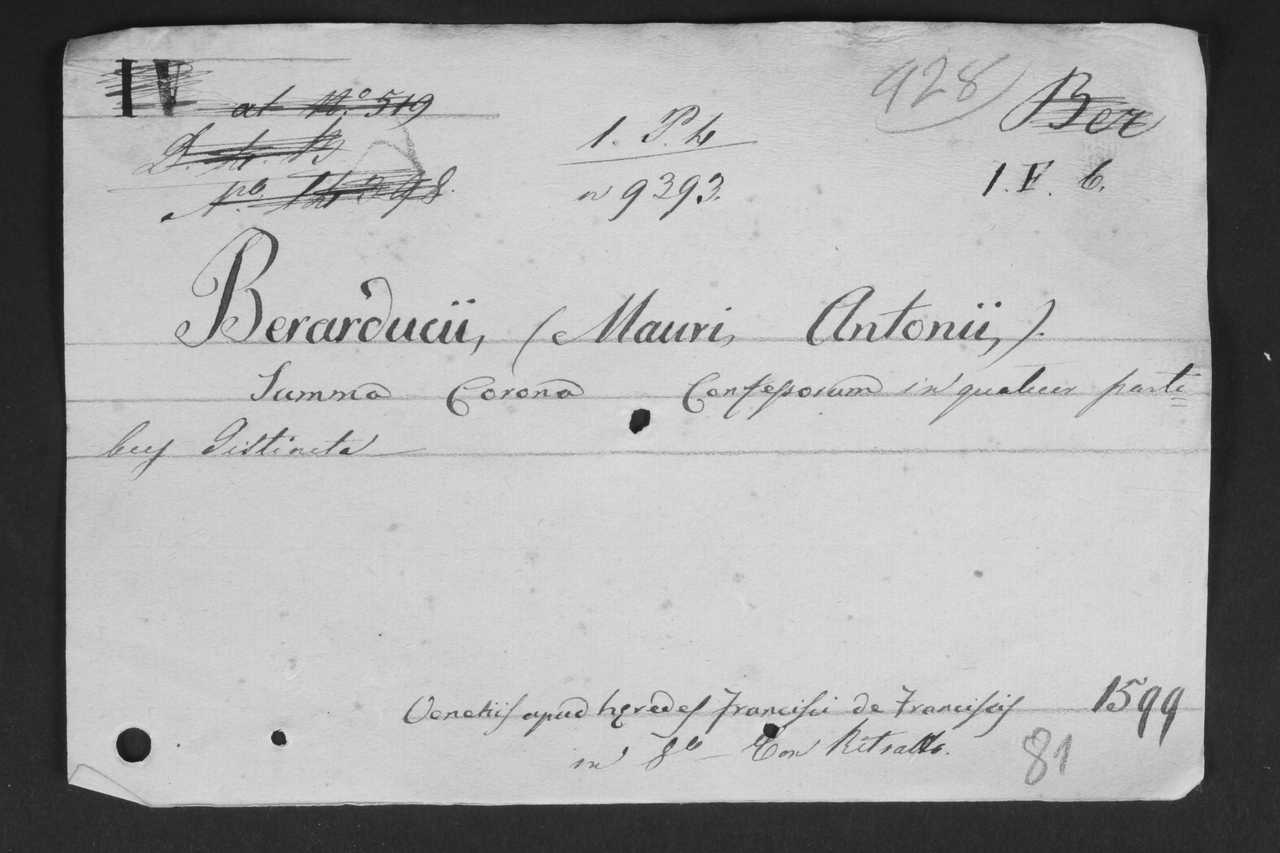 IV
at N.º 519
928
Ber
1. P. 4
nº 9393.
1. F. 6.
Berarducii, (Mauri, Antonii,).
Summa Corona Confessorum in quatuor parti=
bus distincta
Venetiis apud hęredes Francisci de Franciscis 1599
in 8º – Con Ritratto.
81